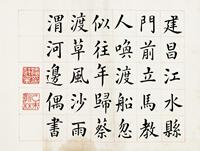 建昌江水縣
門前立馬教
人喚渡船忽
似往年歸蔡
渡草風沙雨
渭河邊偶書